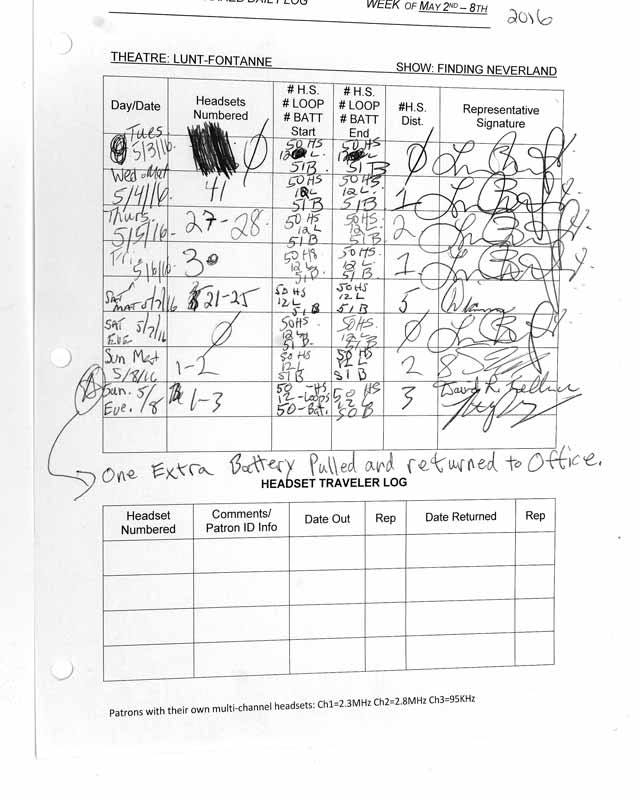 DAILY LOG
WEEK OF MAY 2ND – 8TH
2016
THEATRE: LUNT-FONTANNE
SHOW: FINDING NEVERLAND
Day/Date
Headsets Numbered
# H.S. # LOOP # BATT Start
# H.S. # LOOP # BATT End
#H.S. Dist.
Representative Signature
Tues. 5/3/16
Ø
50 HS 12 L. 51 B
50 HS 12 L 51 B
Ø
Wed. Mat 5/4/16
41
50 HS 12 L 51 B
50 HS. 12 L. 51 B.
1
Thurs. 5/5/16
27-28
50 HS 12 L 51 B
50 HS. 12 L 51 B
2
Fri. 5/6/16
3
50 HS 12 L 51 B
50 HS. 12 L. 51 B
1
SAT MAT 5/7/16
21-25
50 HS 12 L 51 B
50 HS 12 L. 51 B
5
SAT 5/7/16 EVE
Ø
50 HS. 12 L. 51 B.
50 HS. 12 L. 51 B
Ø
Sun Mat 5/8/16
1-2
50 HS 12 L 51 B
50 HS 12 L 51 B
2
Sun. 5/8 Eve.
1-3
50 -HS. 12 -Loops 50 -Bat.
50 HS 12 L 50 B
3
David R.
One Extra Battery Pulled and returned to Office.
HEADSET TRAVELER LOG
Headset Numbered
Comments/ Patron ID Info
Date Out
Rep
Date Returned
Rep
Patrons with their own multi-channel headsets: Ch1=2.3MHz Ch2=2.8MHz Ch3=95KHz